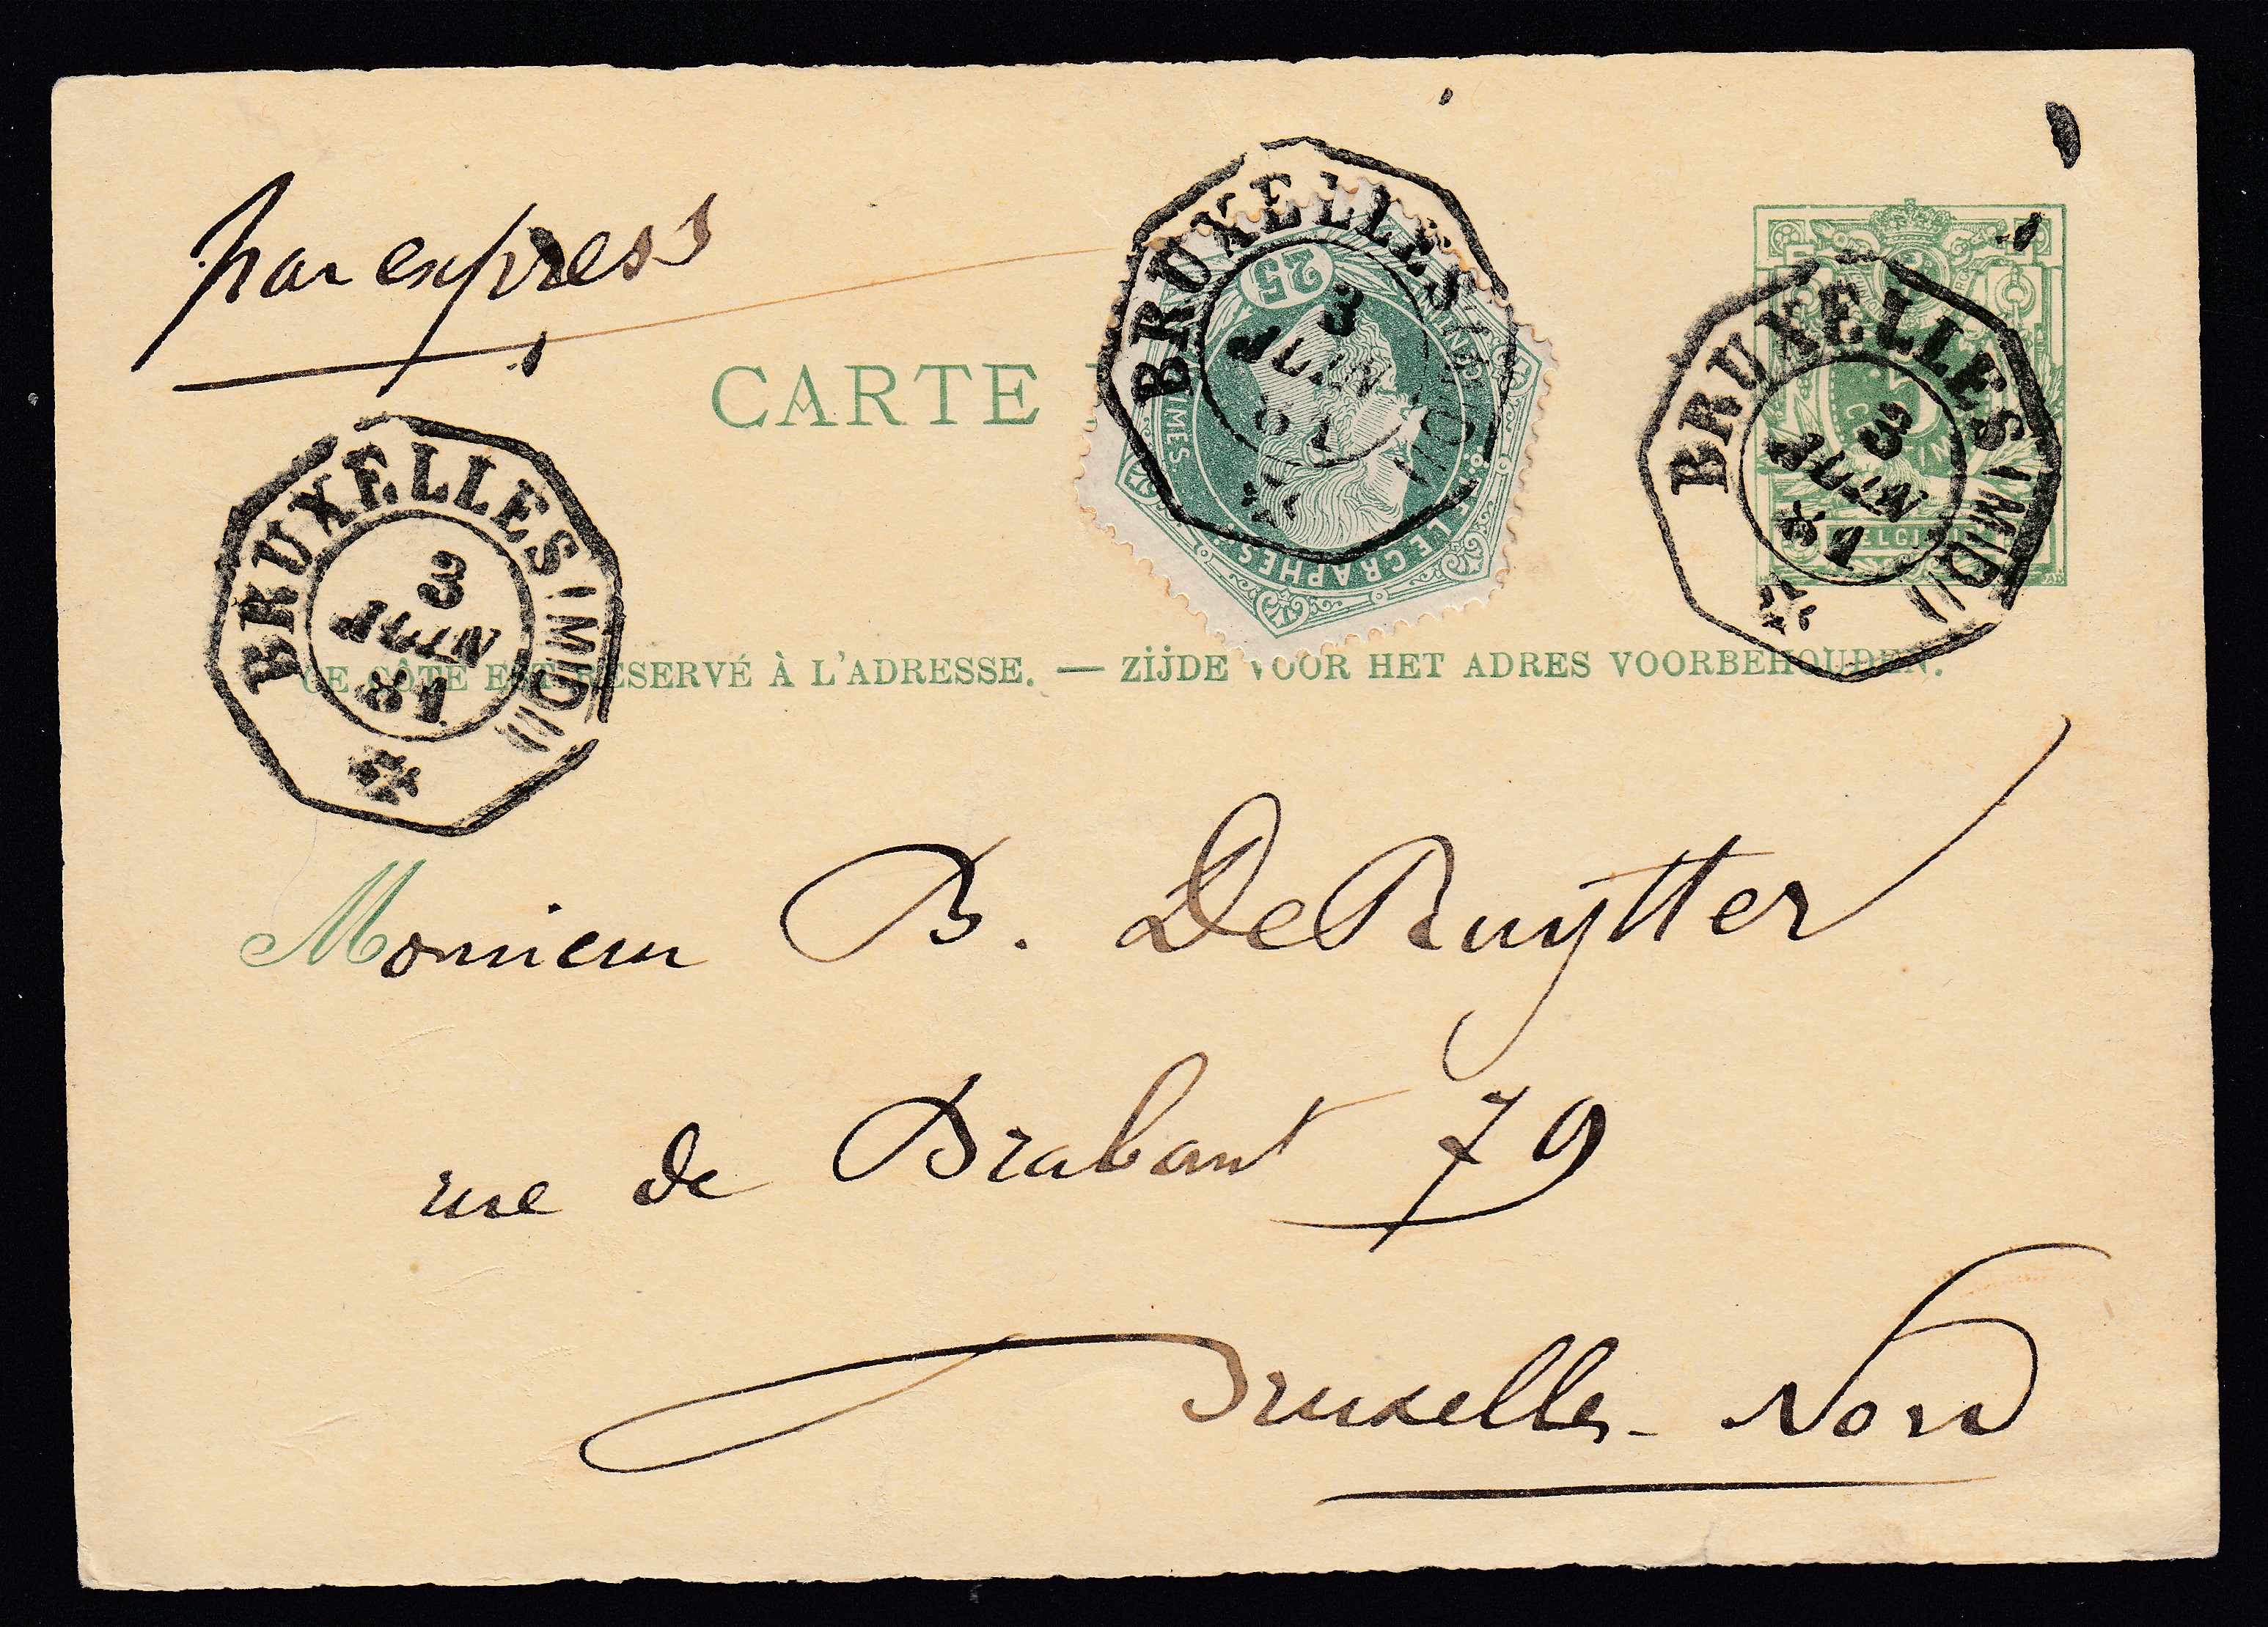 par express
BRUXELLES (MIDI)
3
JUIN
25
CENTIMES.
TÉLÉGRAPHES.
BRUXELLES (MIDI)
3
JUIN
81
5
BELGIQUE
CARTE
BRUXELLES (MIDI)
3
JUIN
81
CE CÔTÉ EST RÉSERVÉ À L'ADRESSE. — ZIJDE VOOR HET ADRES VOORBEHOUDEN.
Monsieur B. DeRuytter
rue de Brabant 79
Bruxelles - Nord